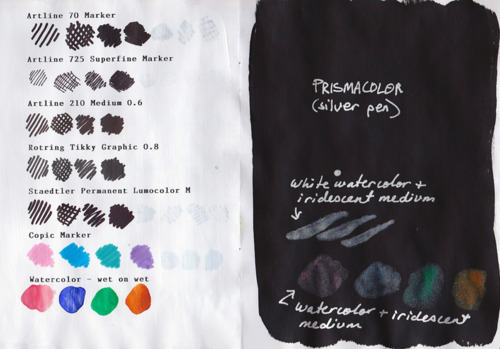 Artline 70 Marker
Artline 725 Superfine Marker
Artline 210 Medium 0.6
Rotring Tikky Graphic 0.8
Staedtler Permanent Lumocolor M
Copic Marker
Watercolor - wet on wet
PRISMACOLOR
(silver pen)
white watercolor +
iridescent medium
watercolor + iridescent
medium